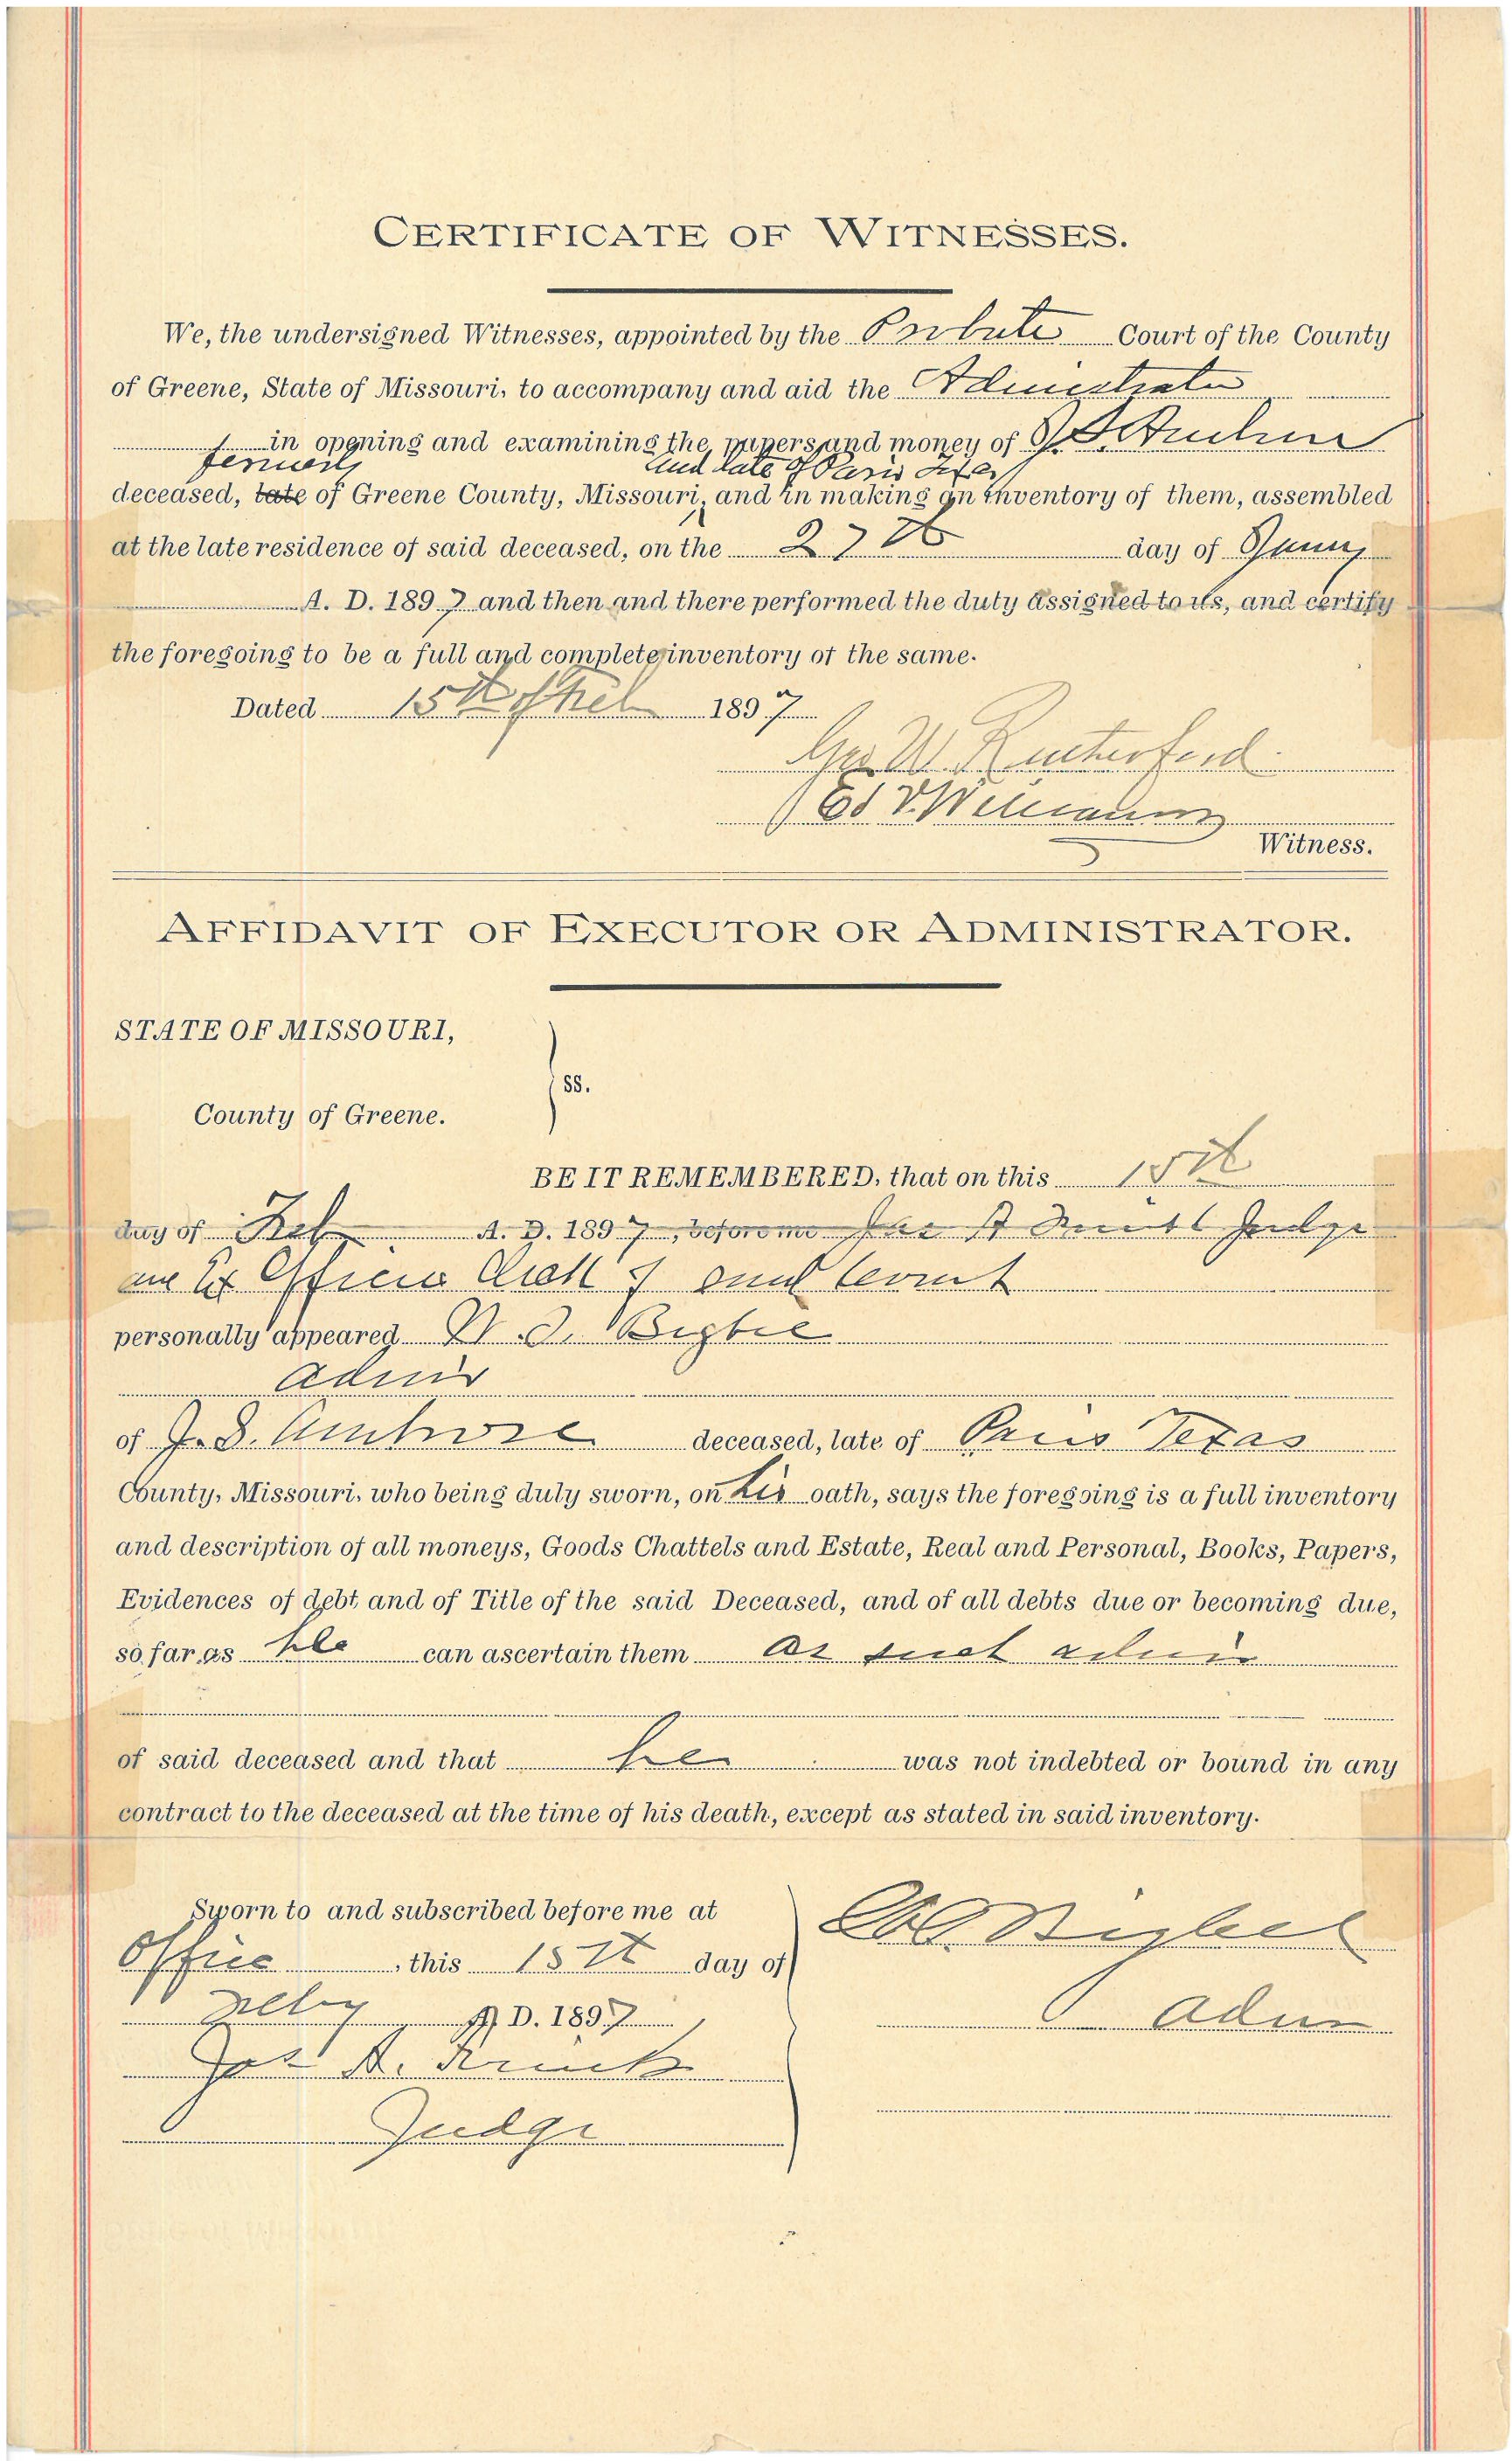 CERTIFICATE OF WITNESSES.
We, the undersigned Witnesses, appointed by the Probate Court of the County
of Greene, State of Missouri, to accompany and aid the Administrator
in opening and examining the papers and money of J. S. Ambrose
formerly and late of Paris Texas
deceased, late of Greene County, Missouri, and in making an inventory of them, assembled
at the late residence of said deceased, on the 27th day of
A. D. 1897 and then and there performed the duty assigned to us, and certify
the foregoing to be a full and complete inventory of the same.
Dated 15th of Feb 1897
Geo W. Rutherford
Ed V. Williams
Witness.
AFFIDAVIT OF EXECUTOR OR ADMINISTRATOR.
STATE OF MISSOURI,
ss.
County of Greene.
BE IT REMEMBERED, that on this 15th
day of Feb A. D. 1897, before me Judge
Ex Officio Clerk of said Court
personally appeared Bigbee
Admr
of J. S. Ambrose deceased, late of Paris Texas
County, Missouri, who being duly sworn, on his oath, says the foregoing is a full inventory
and description of all moneys, Goods Chattels and Estate, Real and Personal, Books, Papers,
Evidences of debt and of Title of the said Deceased, and of all debts due or becoming due,
so far as he can ascertain them as such admr
of said deceased and that he was not indebted or bound in any
contract to the deceased at the time of his death, except as stated in said inventory.
Sworn to and subscribed before me at
Office, this 15th day of
Feby A. D. 1897
Bigbee
Admr
Jas A.
Judge